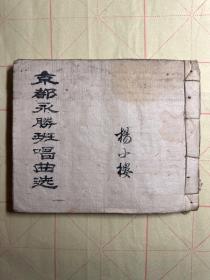 京都永勝班唱曲选
楊小樓